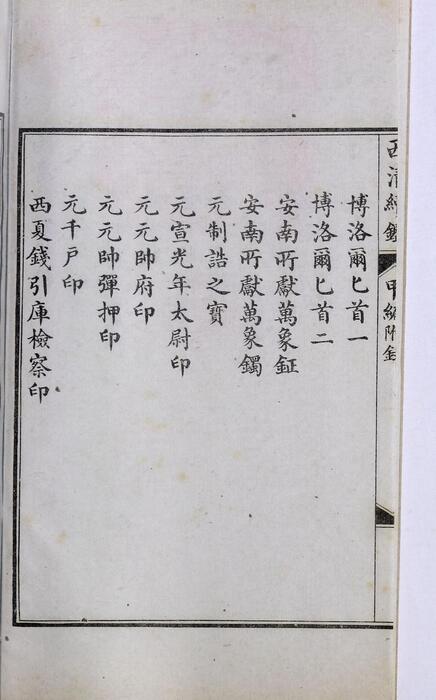 博洛爾匕首一
博洛爾匕首二
安南所獻萬象鉦
安南所獻萬象鐲
元制誥之寶
元宣光年太尉印
元元帥府印
元元帥彈押印
元千戶印
西夏錢引庫檢察印
西清續鑑
甲編附錄